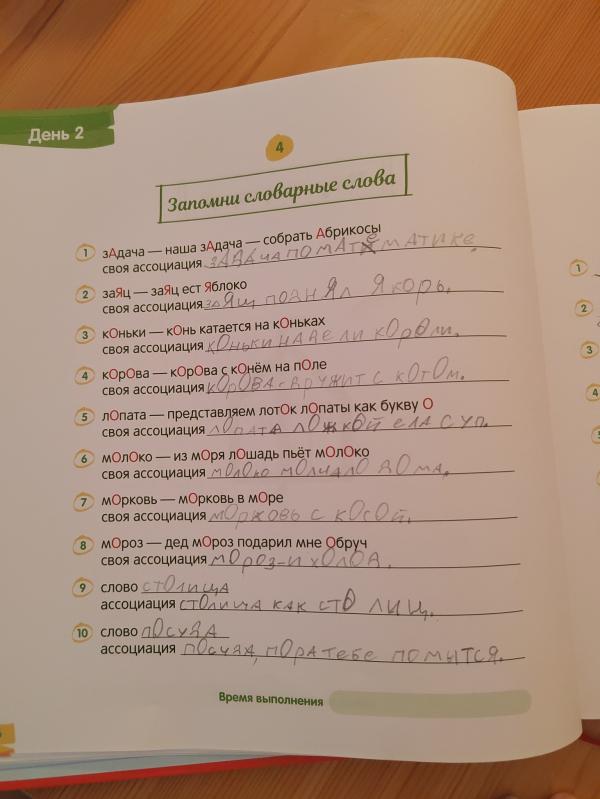 День 2
4
Запомни словарные слова
1 зАдача — наша зАдача — собрать Абрикосы
своя ассоциация зАДАЧА ПО МАТЕМАТИКЕ.
2 заЯц — заЯц ест Яблоко
своя ассоциация заЯц поднЯл Якорь.
3 кОньки — кОнь катается на кОньках
своя ассоциация кОньки надели кОроли.
4 кОрОва — кОрОва с кОнём на пОле
своя ассоциация кОрОВА дружит с кОтОм.
5 лОпата — представляем лотОк лОпаты как букву О
своя ассоциация лОпата лОжкОй ела суп.
6 мОлОко — из мОря лОшадь пьёт мОлОко
своя ассоциация мОлОко мОлчалО дОма.
7 мОрковь — мОрковь в мОре
своя ассоциация мОрковь с кОсОй.
8 мОроз — дед мОроз подарил мне Обруч
своя ассоциация мОроз-и хОлОд.
9 слово стОлица
ассоциация стОлица как стО лиц.
10 слово пОсуда
ассоциация пОсуда, пОра тебе помытся.
Время выполнения
1
2
3
4